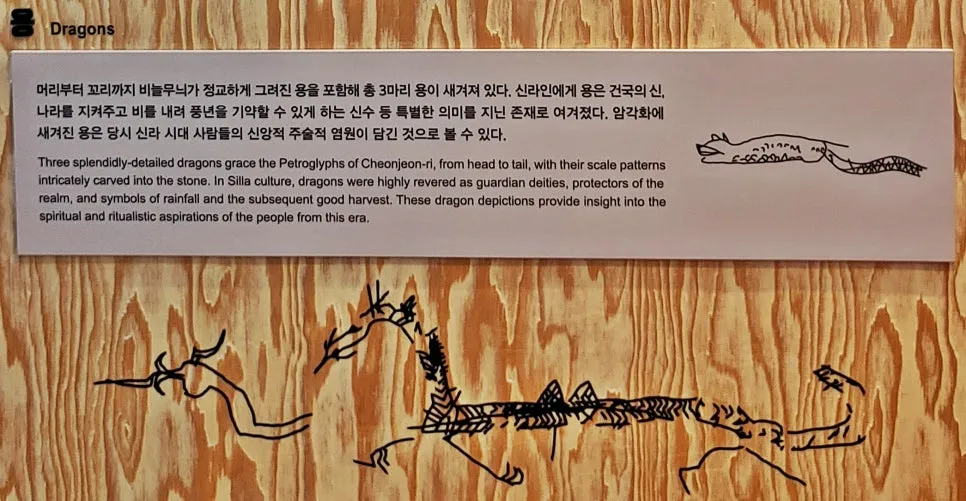 용
Dragons
머리부터 꼬리까지 비늘무늬가 정교하게 그려진 용을 포함해 총 3마리 용이 새겨져 있다. 신라인에게 용은 건국의 신,
나라를 지켜주고 비를 내려 풍년을 기약할 수 있게 하는 신수 등 특별한 의미를 지닌 존재로 여겨졌다. 암각화에
새겨진 용은 당시 신라 시대 사람들의 신앙적 주술적 염원이 담긴 것으로 볼 수 있다.
Three splendidly-detailed dragons grace the Petroglyphs of Cheonjeon-ri, from head to tail, with their scale patterns
intricately carved into the stone. In Silla culture, dragons were highly revered as guardian deities, protectors of the
realm, and symbols of rainfall and the subsequent good harvest. These dragon depictions provide insight into the
spiritual and ritualistic aspirations of the people from this era.